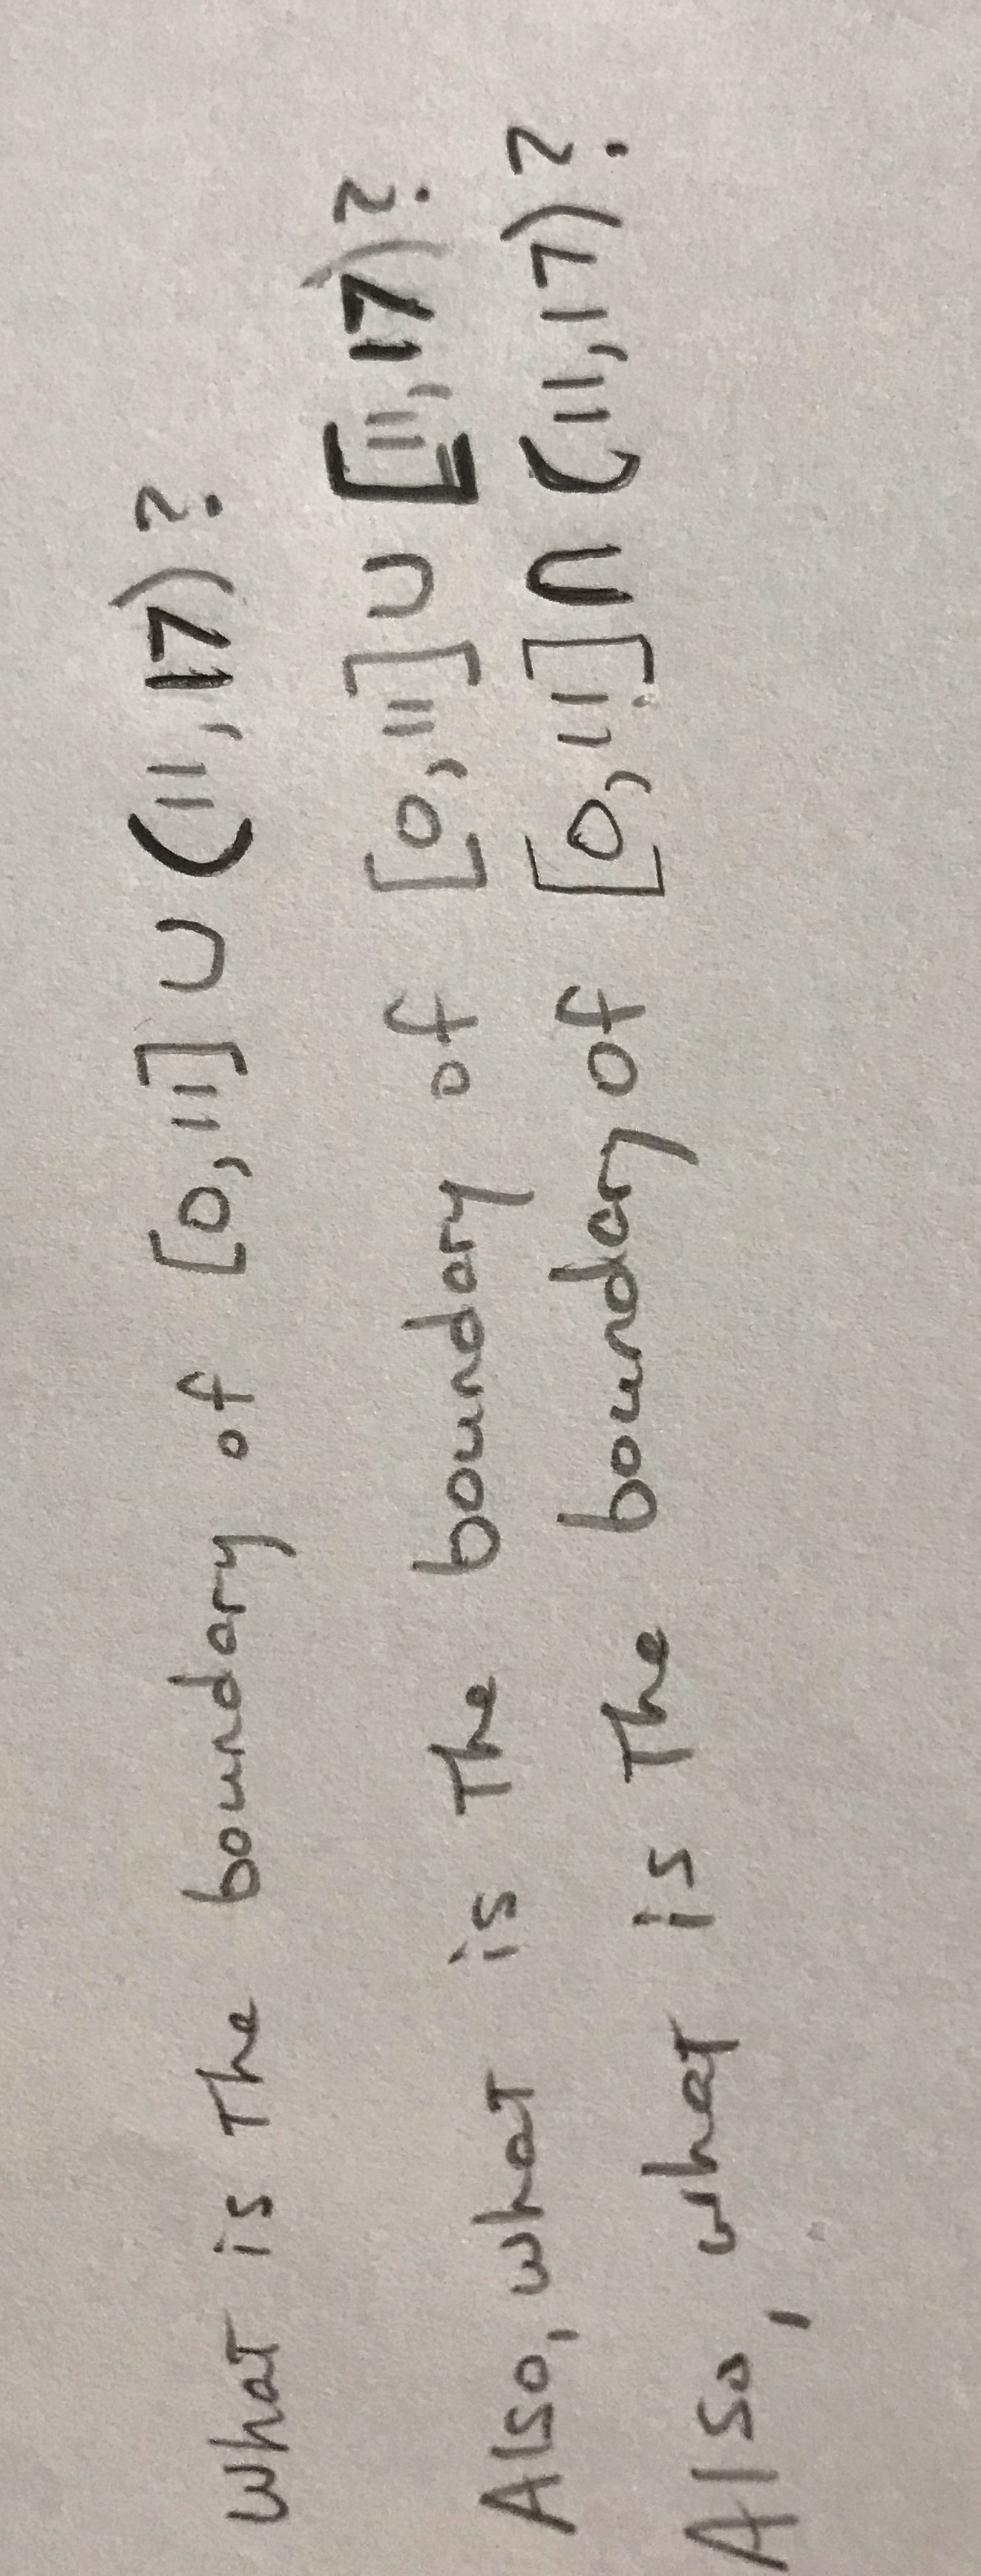 What is the boundary of [0,11] ∪ (11,17)?
Also, what is the boundary of [0,11] ∪ [11,17)?
Also, what is the boundary of [0,11] ∩ (11,17)?